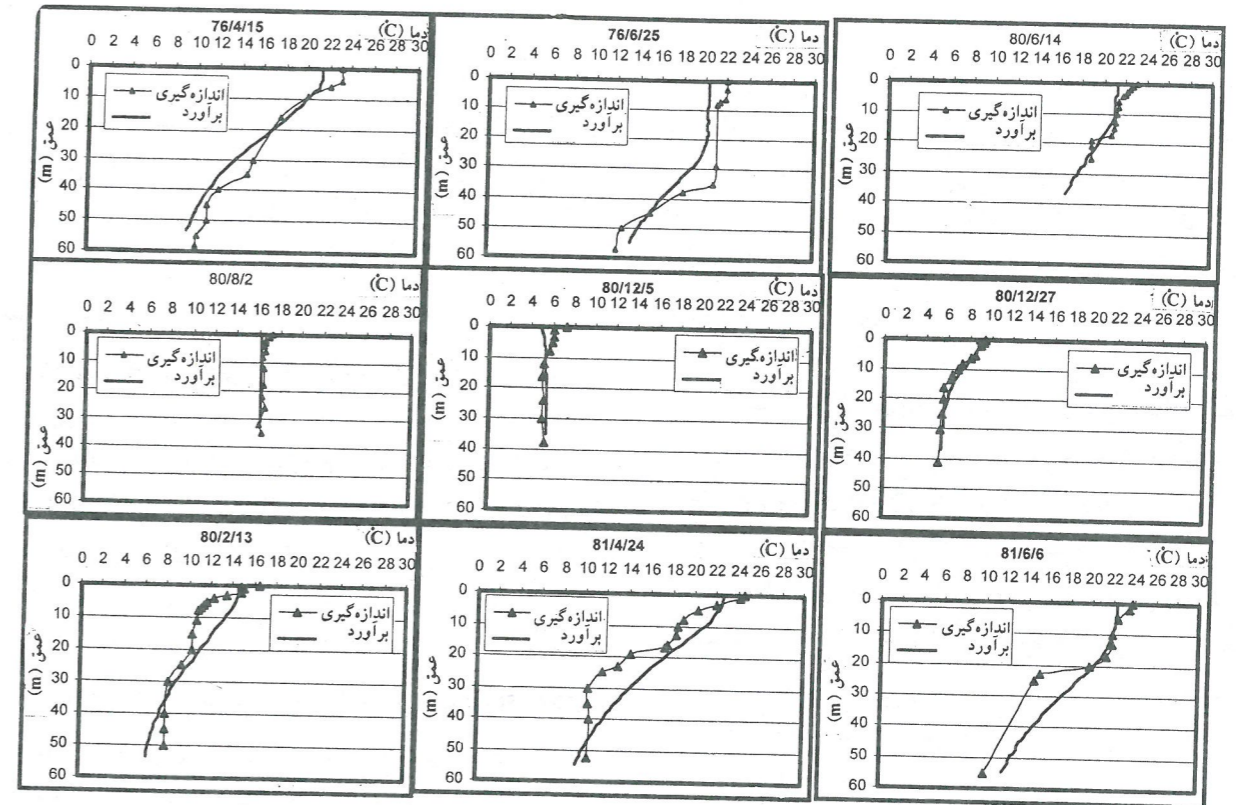 76/4/15
دما (C̊)
0 2 4 6 8 10 12 14 16 18 20 22 24 26 28 30
0
10
20
30
40
50
60
عمق (m)
اندازه‌گیری
برآورد
76/6/25
دما (C̊)
0 2 4 6 8 10 12 14 16 18 20 22 24 26 28 30
0
10
20
30
40
50
60
عمق (m)
اندازه‌گیری
برآورد
80/6/14
دما (C̊)
0 2 4 6 8 10 12 14 16 18 20 22 24 26 28 30
0
10
20
30
40
50
60
عمق (m)
اندازه‌گیری
برآورد
80/8/2
دما (C̊)
0 2 4 6 8 10 12 14 16 18 20 22 24 26 28 30
0
10
20
30
40
50
60
عمق (m)
اندازه‌گیری
برآورد
80/12/5
دما (C̊)
0 2 4 6 8 10 12 14 16 18 20 22 24 26 28 30
0
10
20
30
40
50
60
عمق (m)
اندازه‌گیری
برآورد
80/12/27
دما (C̊)
0 2 4 6 8 10 12 14 16 18 20 22 24 26 28 30
0
10
20
30
40
50
60
عمق (m)
اندازه‌گیری
برآورد
80/2/13
دما (C̊)
0 2 4 6 8 10 12 14 16 18 20 22 24 26 28 30
0
10
20
30
40
50
60
عمق (m)
اندازه‌گیری
برآورد
81/4/24
دما (C̊)
0 2 4 6 8 10 12 14 16 18 20 22 24 26 28 30
0
10
20
30
40
50
60
عمق (m)
اندازه‌گیری
برآورد
81/6/6
دما (C̊)
0 2 4 6 8 10 12 14 16 18 20 22 24 26 28 30
0
10
20
30
40
50
60
عمق (m)
اندازه‌گیری
برآورد